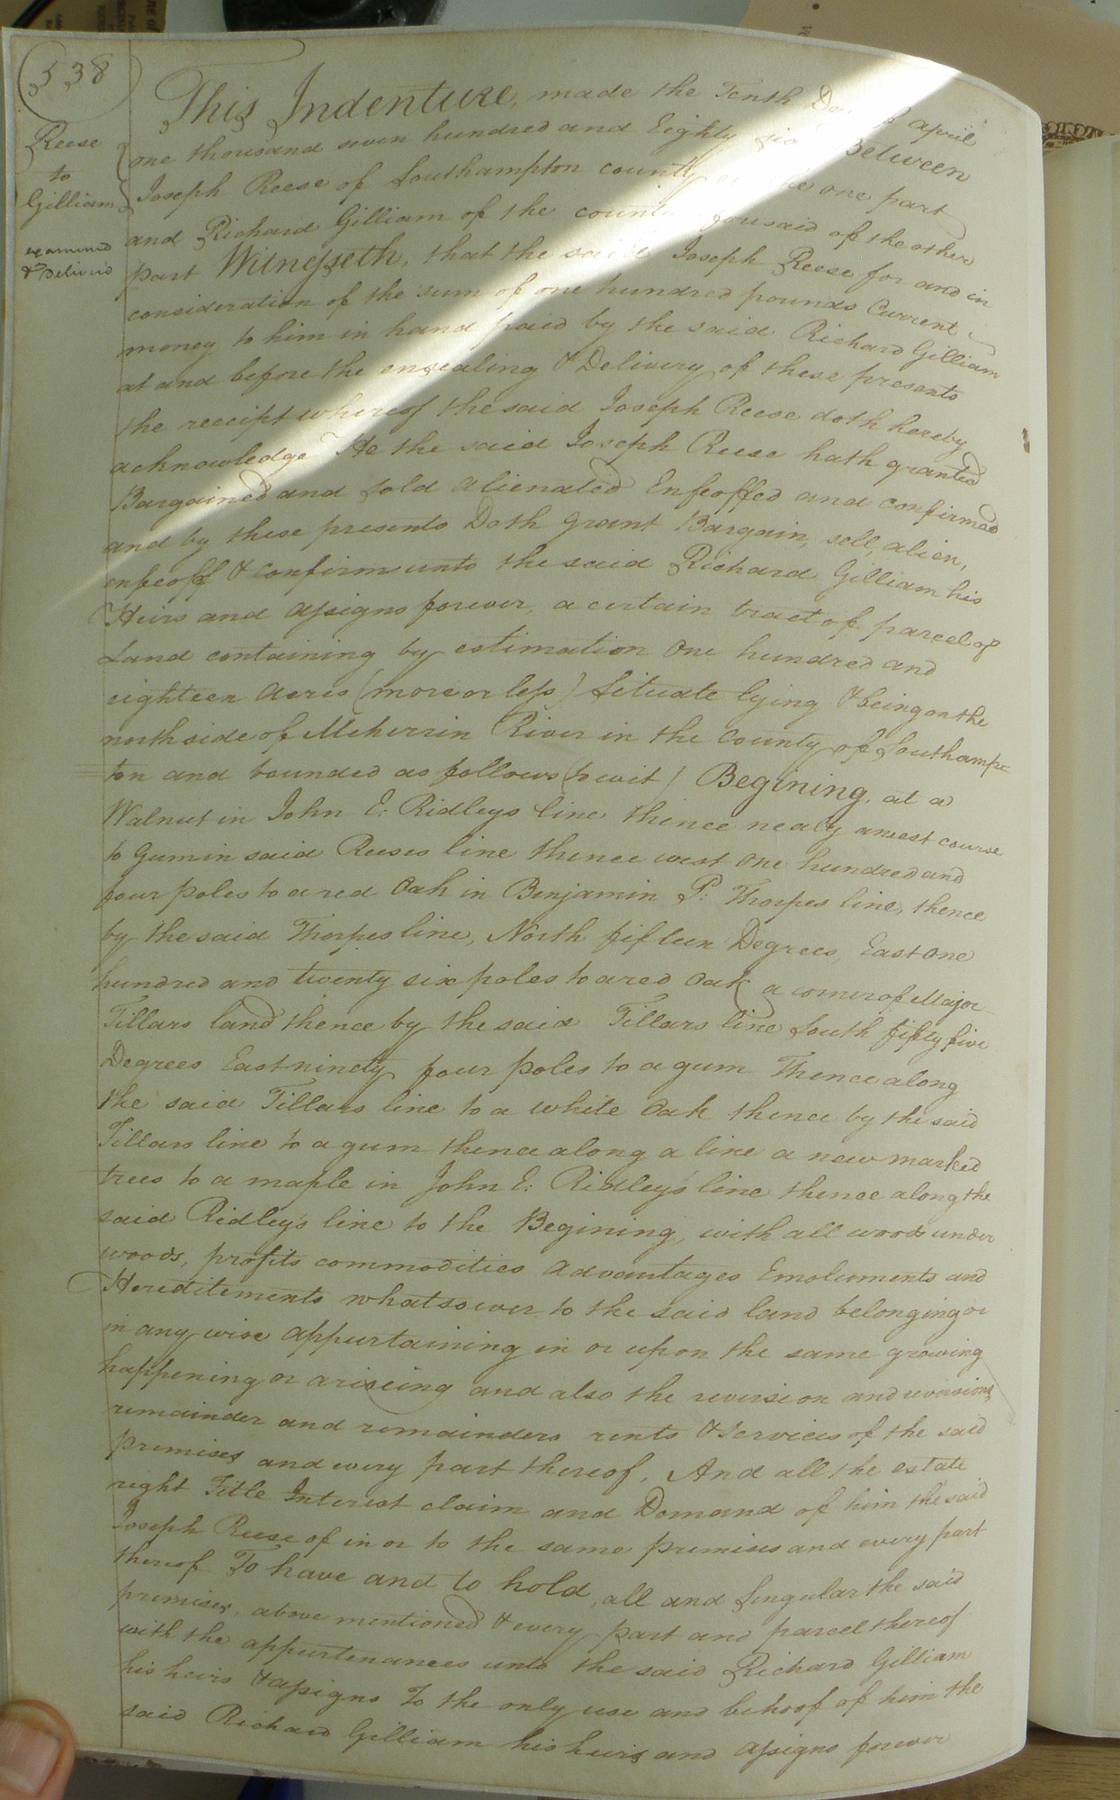 538
Reese
to
Gilliam
examined
& Deliver'd
This Indenture, made the Tenth Day of april
one thousand seven hundred and Eighty six Between
Joseph Reese of Southampton county of the one part
and Richard Gilliam of the county aforesaid of the other
part Witnesseth, that the said Joseph Reese for and in
consideration of the sum of one hundred pounds Current
money to him in hand paid by the said Richard Gilliam
at and before the ensealing & Delivery of these presents
the receipt whereof the said Joseph Reese doth hereby
acknowledge He the said Joseph Reese hath granted
Bargained and sold alienated Enfeoffed and confirmed
and by these presents Doth grant Bargain, sell, alien,
enfeoff & confirm unto the said Richard Gilliam his
Heirs and assigns forever, a certain tract of parcel of
Land containing by estimation One hundred and
eighteen Acres (more or less) Situate lying & being on the
north side of Meherrin River in the County of Southamp=
=ton and bounded as follows (to wit) Begining, at a
Walnut in John E: Ridleys line thence nealy a west course
to Gum in said Reeses line thence west One hundred and
four poles to a red Oak in Benjamin P: Thorpes line, thence
by the said Thorpes line, North fifteen Degrees, East one
hundred and twenty six poles to a red Oak a corner of Major
Tillars land thence by the said Tillars line South fifty five
Degrees East ninety four poles to a gum Thence along
the said Tillars line to a white Oak thence by the said
Tillars line to a gum thence along a line a new marked
trees to a maple in John E: Ridley's line thence along the
said Ridley's line to the Begining, with all woods under
woods, profits commodities advantages Emoluments and
Hereditements whatsoever to the said land belonging or
in any wise appurtaining in or upon the same growing
happening or ariseing and also the reversion and reversions
remainder and remainders rents & Services of the said
premises and every part thereof, And all the estate
right Title Interest claim and Demand of him the said
Joseph Reese of in or to the same premises and every part
thereof To have and to hold, all and Singular the said
premises, above mentioned & every part and parcel thereof
with the appurtenances unto the said Richard Gilliam
his heirs & assigns To the only use and behoof of him the
said Richard Gilliam his heirs and assigns forever